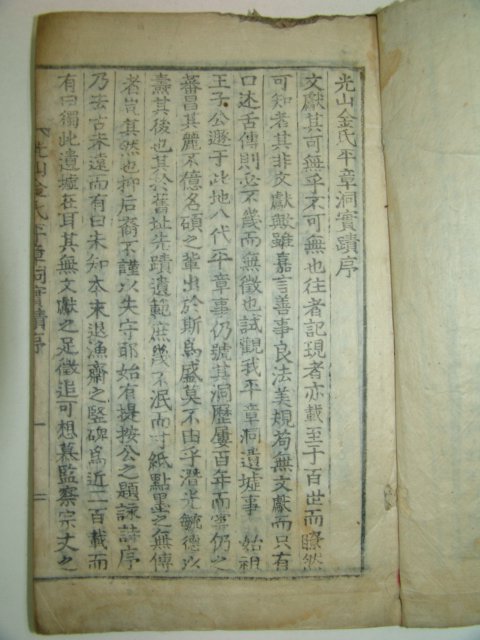 光山金氏平章洞實蹟序
文獻其可無乎不可無也往者記現者亦載至于百世而瞭然
可知者其非文獻歟雖嘉言善事良法美規苟無文獻而只有
口述舌傳則必不幾而無徵也試觀我平章洞遺墟事 始祖
王子公遯于此地八代平章事仍號其洞歷屢百年而雲仍之
蕃昌其麗不億名碩之輩出於斯爲盛莫不由乎潛光毓德以
壽其後也其於舊址先蹟遺範庶幾不泯而寸紙點墨之無傳
者豈其然也抑后裔不謹以失守耶始有據按公之題詠詩序
乃去古未遠而有曰未知本末退漁齋之竪碑爲近二百載而
有曰獨此遺墟在耳其無文獻之足徵追可想慕監察宗丈之
光山金氏平章洞實蹟序 一